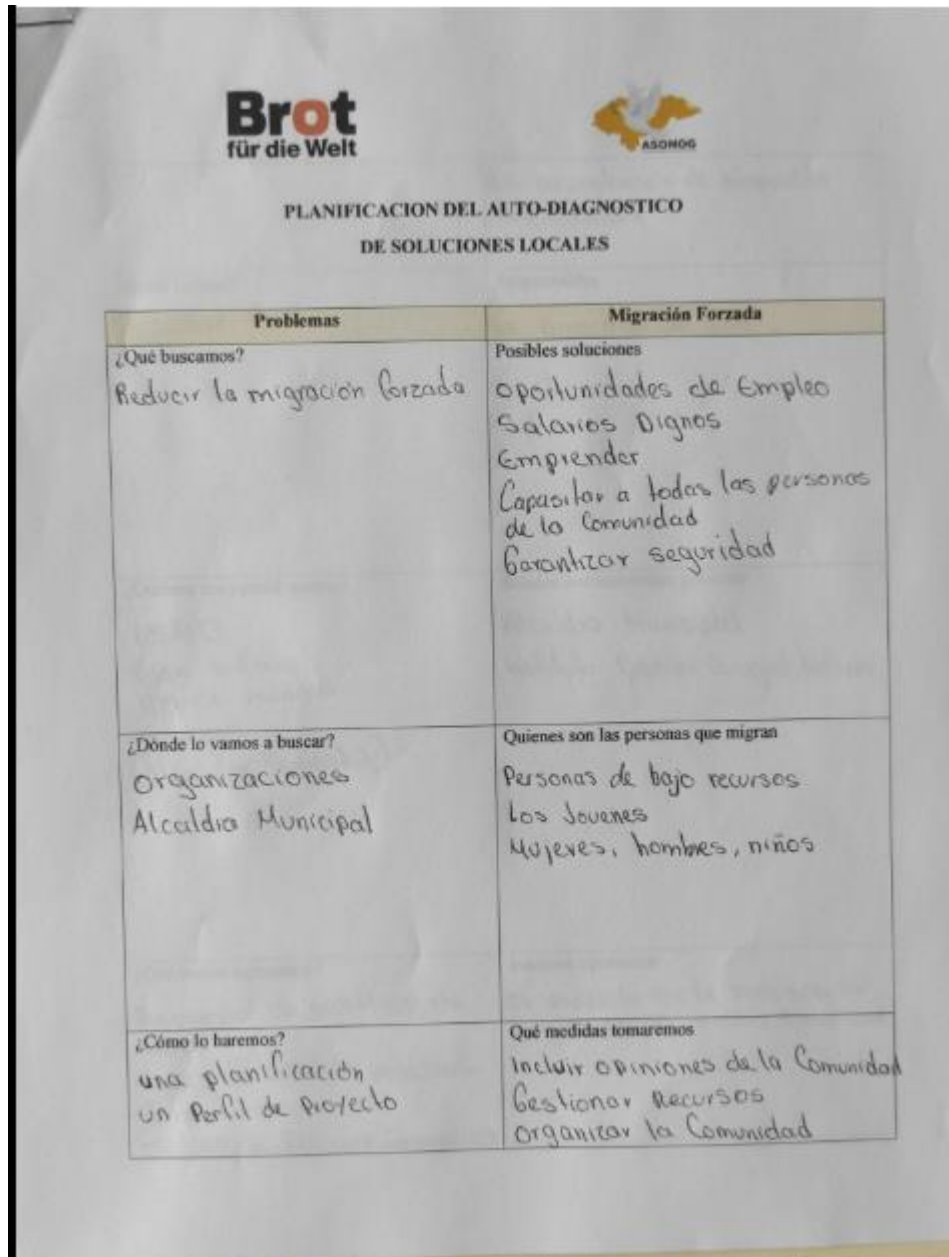 Brot
für die Welt
ASONOG
PLANIFICACION DEL AUTO-DIAGNOSTICO
DE SOLUCIONES LOCALES
Problemas
Migración Forzada
¿Qué buscamos?
Reducir la migración forzada
Posibles soluciones
Oportunidades de Empleo
Salarios Dignos
Emprender
Capasitar a todas las personas
de la Comunidad
Garantizar seguridad
¿Dónde lo vamos a buscar?
Organizaciones
Alcaldia Municipal
Quienes son las personas que migran
Personas de bajo recursos
Los Jovenes
Mujeres, hombres, niños
¿Cómo lo haremos?
una planificación
un Perfil de Proyecto
Qué medidas tomaremos
Incluir opiniones de la Comunidad
Gestionar Recursos
Organizar la Comunidad